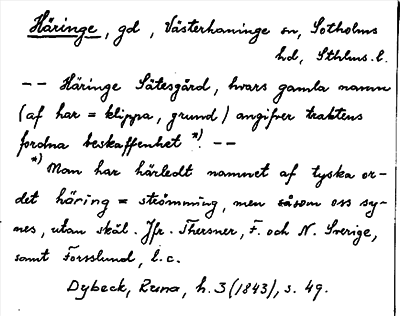 Häringe, gd, Västerhaninge sn, Sotholms
hd, Sthlms.l.
-- Häringe Sätesgård, hvars gamla namn
(af har = klippa, grund) angifver traktens
fordna beskaffenhet *). --
*) Man har härledt namnet af tyska or-
det häring = strömming, men såsom oss sy-
nes, utan skäl. Jfr. Thersner, F. och N. Sverige,
samt Forsslund, l.c.
Dybeck, Runa, h. 3 (1843), s. 49.